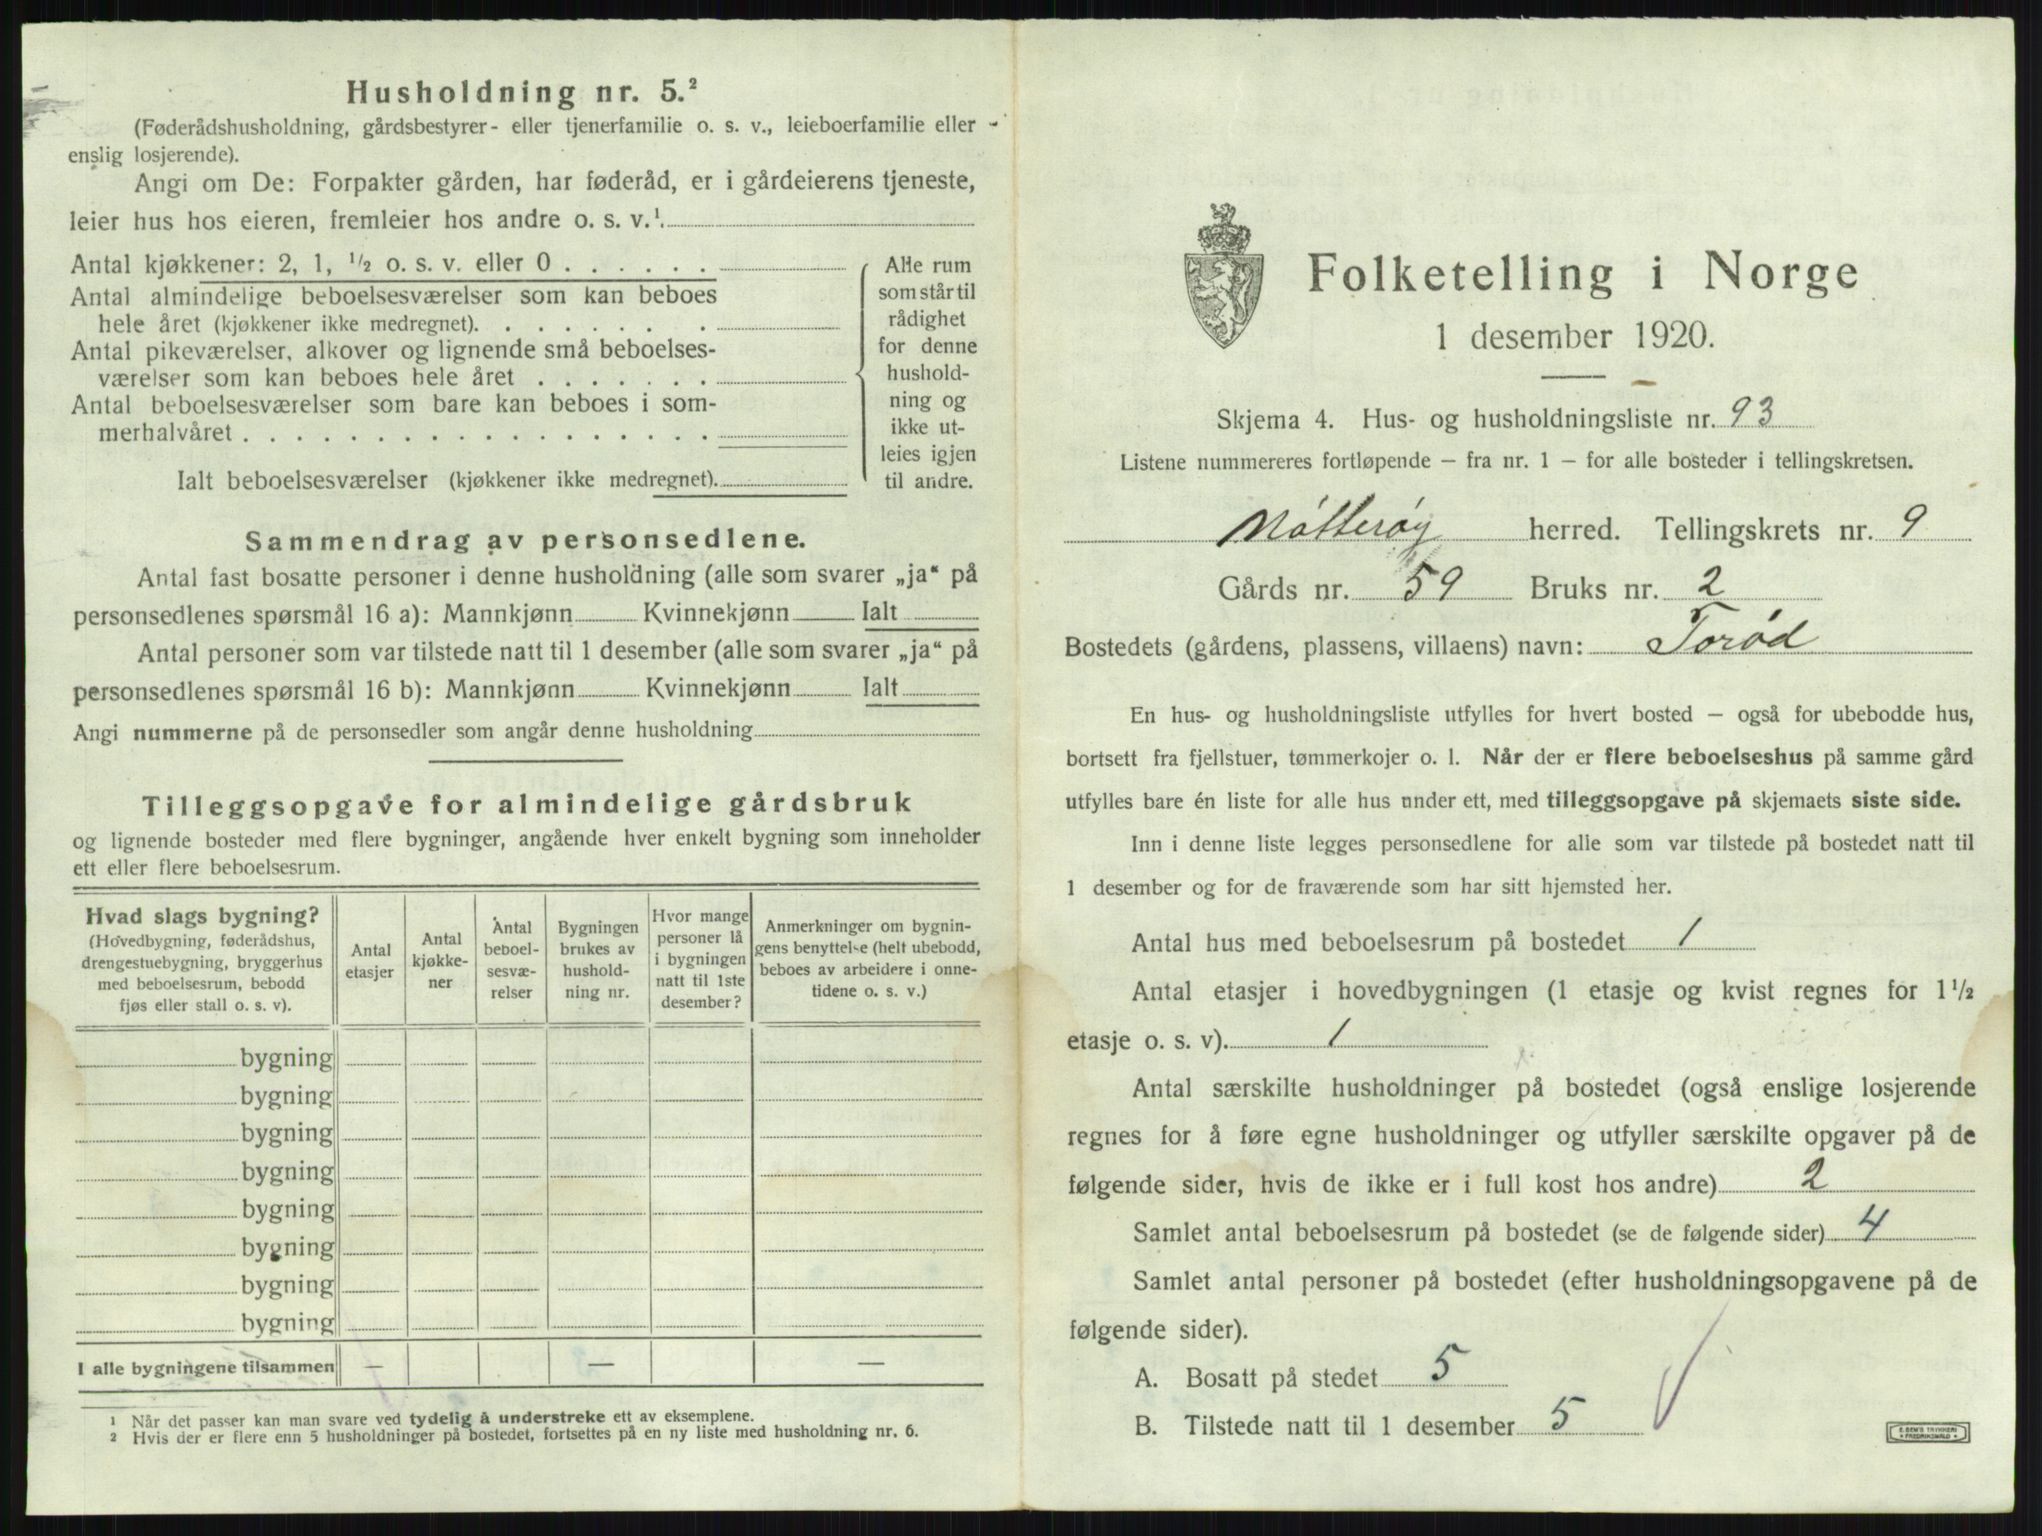 Husholdning nr. 5.²
(Føderådshusholdning, gårdsbestyrer- eller tjenerfamilie o. s. v., leieboerfamilie eller
enslig losjerende).
Angi om De: Forpakter gården, har føderåd, er i gårdeierens tjeneste,
leier hus hos eieren, fremleier hos andre o. s. v.¹.
Antal kjøkkener: 2, 1, ½ o. s. v. eller 0 . . . . . .
Antal almindelige beboelsesværelser som kan beboes
hele året (kjøkkener ikke medregnet). . . . . . . .
Antal pikeværelser, alkover og lignende små beboelses-
værelser som kan beboes hele året . . . . . . .
Antal beboelsesværelser som bare kan beboes i som-
merhalvåret . . . . . . . . . . . . . . . . . .
Ialt beboelsesværelser (kjøkkener ikke medregnet).
Alle rum
som står til
rådighet
for denne
hushold-
ning og
ikke ut-
leies igjen
til andre.
Sammendrag av personsedlene.
Antal fast bosatte personer i denne husholdning (alle som svarer „ja“ på
personsedlenes spørsmål 16 a): Mannkjønn Kvinnekjønn Ialt
Antal personer som var tilstede natt til 1 desember (alle som svarer „ja“ på
personsedlenes spørsmål 16 b): Mannkjønn Kvinnekjønn Ialt
Angi nummerne på de personsedler som angår denne husholdning
Tilleggsopgave for almindelige gårdsbruk
og lignende bosteder med flere bygninger, angående hver enkelt bygning som inneholder
ett eller flere beboelsesrum.
Hvad slags bygning?
(Hovedbygning, føderådshus,
drengestuebygning, bryggerhus
med beboelsesrum, bebodd
fjøs eller stall o. s. v).
Antal
etasjer
Antal
kjøkke-
ner
Antal
beboel-
sesvæ-
relser
Bygningen
brukes av
hushold-
ning nr.
Hvor mange
personer lå
i bygningen
natt til 1ste
desember?
Anmerkninger om bygnin-
gens benyttelse (helt ubebodd,
beboes av arbeidere i onne-
tidene o. s. v.)
bygning
bygning
bygning
bygning
bygning
bygning
bygning
bygning
I alle bygningene tilsammen — — —
¹ Når det passer kan man svare ved tydelig å understreke ett av eksemplene.
² Hvis der er flere enn 5 husholdninger på bostedet, fortsettes på en ny liste med husholdning nr. 6.
Folketelling i Norge
1 desember 1920.
Skjema 4. Hus- og husholdningsliste nr. 93
Listene nummereres fortløpende — fra nr. 1 — for alle bosteder i tellingskretsen.
Nøtterøy herred. Tellingskrets nr. 9
Gårds nr. 59 Bruks nr. 2
Bostedets (gårdens, plassens, villaens) navn: Torød
En hus- og husholdningsliste utfylles for hvert bosted — også for ubebodde hus,
bortsett fra fjellstuer, tømmerkojer o. l. Når der er flere beboelseshus på samme gård
utfylles bare én liste for alle hus under ett, med tilleggsopgave på skjemaets siste side.
Inn i denne liste legges personsedlene for alle som var tilstede på bostedet natt til
1 desember og for de fraværende som har sitt hjemsted her.
Antal hus med beboelsesrum på bostedet 1
Antal etasjer i hovedbygningen (1 etasje og kvist regnes for 1½
etasje o. s. v). 1
Antal særskilte husholdninger på bostedet (også enslige losjerende
regnes for å føre egne husholdninger og utfyller særskilte opgaver på de
følgende sider, hvis de ikke er i full kost hos andre) 2
Samlet antal beboelsesrum på bostedet (se de følgende sider) 4
Samlet antal personer på bostedet (efter husholdningsopgavene på de
følgende sider).
A. Bosatt på stedet 5
B. Tilstede natt til 1 desember 5